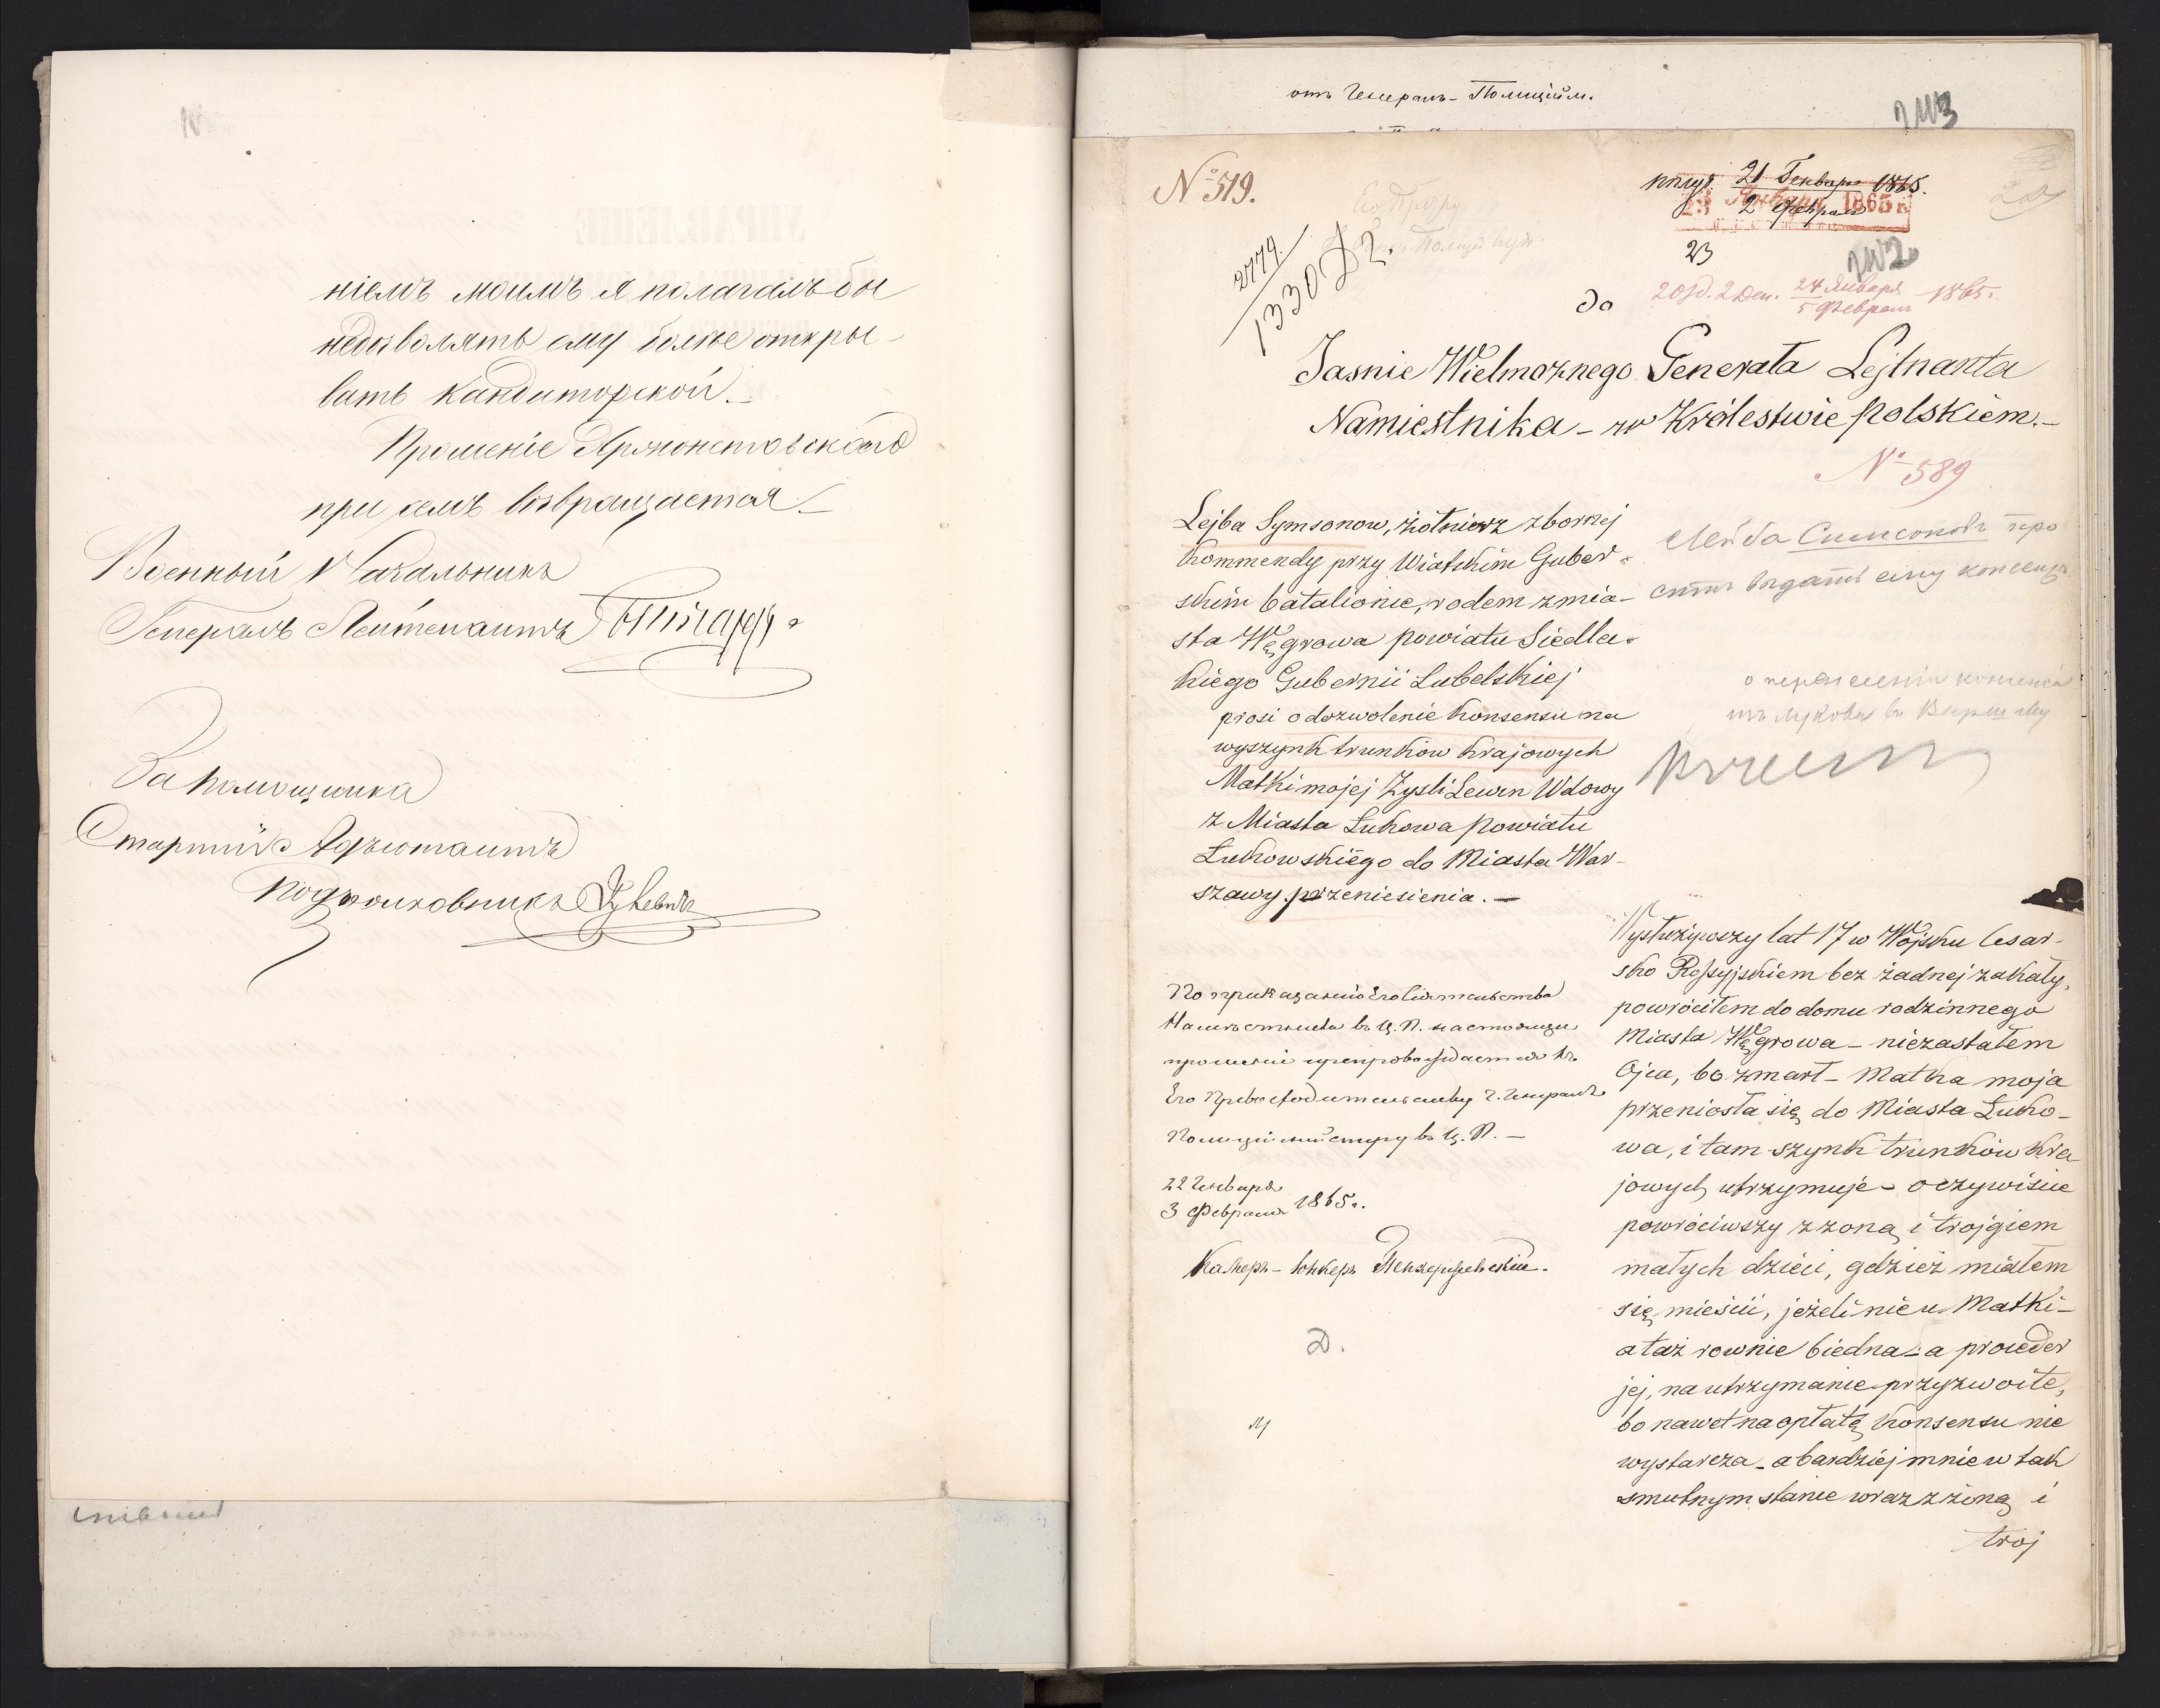 ніемъ моимъ я полагалъ бы
недозволять ему болѣе откры-
вать Кандиторской.
Прошеніе Яржонстовскаго
при семъ возвращается.
Военный Начальникъ
Генералъ Лейтенантъ
За Помощника
Старшій Адъютантъ
Подполковникъ
отъ Генералъ-Полиційм.
№ 519.
2779/1330 Д2.
получ. 21 Генваря 1865.
2 Февраля
23
20 Jd. 2 Деп. 24 Января / 5 Февраля 1865 г.
do
Jasnie Wielmoznego Generała Lejtnanta
Namiestnika - w Królestwie Polskiem.-
№ 589
Lejba Symsonow, żołnierz zbornej
Kommendy przy Wiatskim Guber-
skim batalionie, rodem z mia-
sta Węgrowa powiatu Siedlec-
kiego Gubernii Lubelskiej
prosi o dozwolenie konsensu na
wyszynk trunków krajowych
Matki mojej Zysli Lewin Wdowy
z Miasta Łukowa powiatu
Łukowskiego do Miasta War-
szawy przeniesienia.-
Лейба Симсоновъ про
ситъ выдать ему консенсъ
о перенесеніи консенса
изъ Лукова въ Варшаву
По приказанію Его Сіятельства
Намѣстника въ Ц. П. настоящее
прошеніе препровождается къ
Его Превосходительству Г. Генералъ
Полиціймейстеру въ Ц. П. -
22 Генваря
3 Февраля 1865 г.
Камеръ-Юнкеръ
Д.
Wysłużywszy lat 17 w Wojsku Cesar-
sko Rossyjskiem bez żadnej zakały,
powróciłem do domu rodzinnego
Miasta Węgrowa - niezastałem
Ojca, bo zmarł - Matka moja
przeniosła się do Miasta Łuko-
wa, i tam szynk trunków kra
jowych utrzymuje - oczywiście
powróciwszy z zoną i trojgiem
małych dzieci, gdzież miałem
się mieścić, jeżeli nie u Matki -
a taż rownie biedna - a proceder
jej, na utrzymanie przyzwoite,
bo nawet na opłatę konsensu nie
wystarcza - a bardziej mnie w tak
smutnym stanie wraz z żoną i
troj